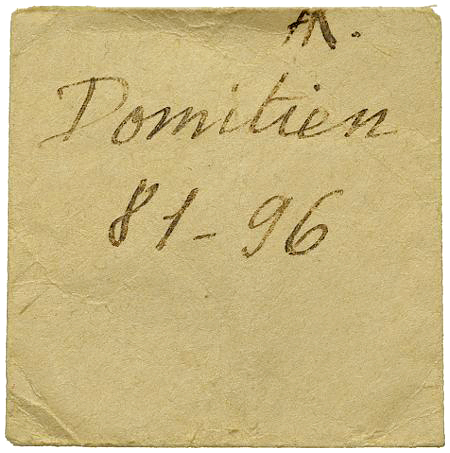 AR.
Domitien
81-96